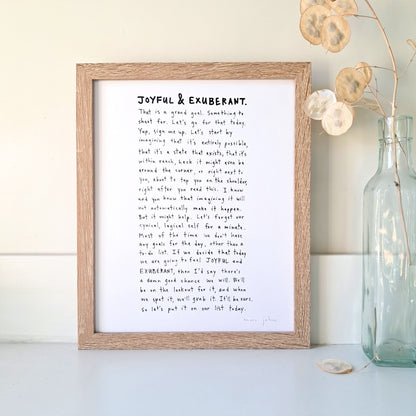 JOYFUL & EXUBERANT.
That is a grand goal. Something to
shoot for. Let's go for that today.
Yup, sign me up. Let's start by
imagining that it's entirely possible,
that it's a state that exists, that it's
within reach, heck it might even be
around the corner, or right next to
you, about to tap you on the shoulder,
right after you read this. I know
and you know that imagining it will
not automatically make it happen.
But it might help. Let's forget our
cynical, logical self for a minute.
Most of the time we don't have
any goals for the day, other than a
to-do list. If we decide that today
we are going to feel JOYFUL and
EXUBERANT, then I'd say there's
a damn good chance we will. We'll
be on the lookout for it, and when
we spot it, we'll grab it. It'll be ours.
so let's put it on our list today.